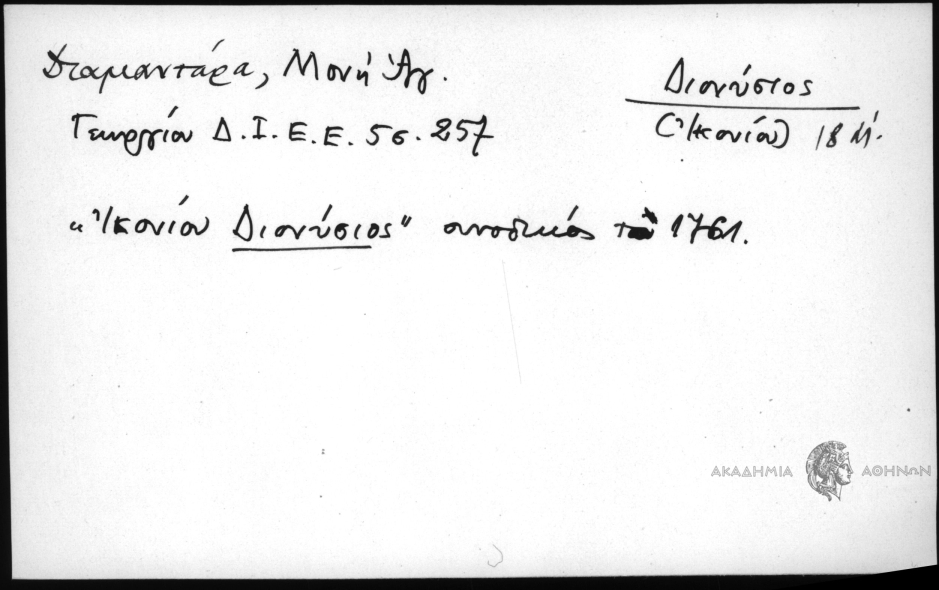 Διαμαντάρα, Μονή Ἁγ.
Γεωργίου Δ.Ι.Ε.Ε. 5 σ. 257
Διονύσιος
(Ἰκονίου) 18 Μ.
"Ἰκονίου Διονύσιος" συνοδικός τῷ 1761.
ΑΚΑΔΗΜΙΑ ΑΘΗΝΩΝ